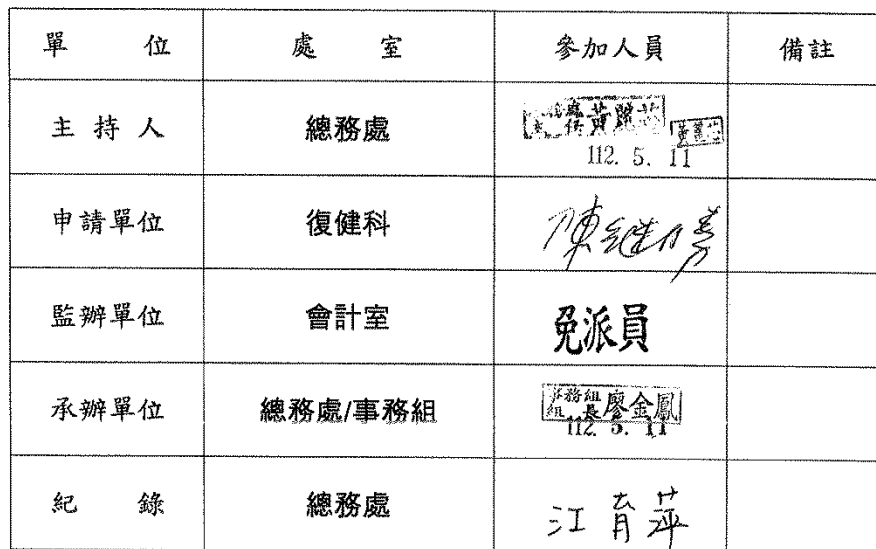 單 位 處 室 參加人員 備註
主 持 人 總務處 黃麗芯
112. 5. 11
申請單位 復健科 陳繼勝
監辦單位 會計室 免派員
承辦單位 總務處/事務組 事務組組長 廖金鳳
112. 5. 11
紀 錄 總務處 江育萍